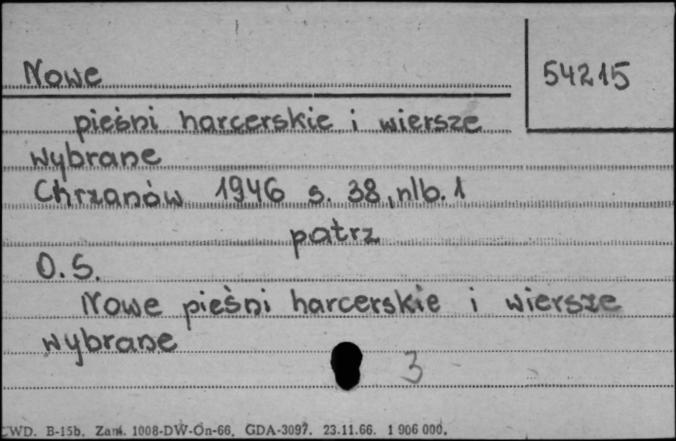 Nowe
54215
pieśni harcerskie i wiersze
wybrane
Chrzanów 1946 s. 38, nlb. 1
patrz
O.S.
Nowe pieśni harcerskie i wiersze
wybrane
3
CWD. B-15b. Zam. 1008-DW-On-66. GDA-3097. 23.11.66. 1 906 000.